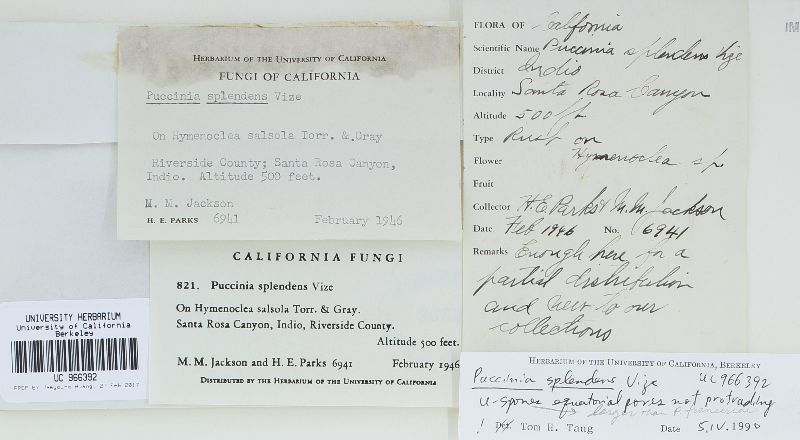 HERBARIUM OF THE UNIVERSITY OF CALIFORNIA
FUNGI OF CALIFORNIA
Puccinia splendens Vize
On Hymenoclea salsola Torr. & Gray
Riverside County; Santa Rosa Canyon,
Indio. Altitude 500 feet.
M. M. Jackson
H. E. PARKS 6941 February 1946
CALIFORNIA FUNGI
821. Puccinia splendens Vize
On Hymenoclea salsola Torr. & Gray.
Santa Rosa Canyon, Indio, Riverside County.
Altitude 500 feet.
M. M. Jackson and H. E. Parks 6941 February 1946
DISTRIBUTED BY THE HERBARIUM OF THE UNIVERSITY OF CALIFORNIA
UNIVERSITY HERBARIUM
University of California
Berkeley
UC 966392
FLORA OF California
Scientific Name Puccinia splendens Vize
District Indio
Locality Santa Rosa Canyon
Altitude 500 ft
Type Rust on
Flower Hymenoclea sp
Fruit
Collector H.E. Parks & M.M. Jackson
Date Feb 1946 No. 6941
Remarks Enough here for a
partial distribution
and new to our
collections
HERBARIUM OF THE UNIVERSITY OF CALIFORNIA, BERKELEY
Puccinia splendens Vize UC 966392
u-spores equatorial pores not protruding
larger than P.
! Det. Tom H. Tang Date 5.IV.1990
IM